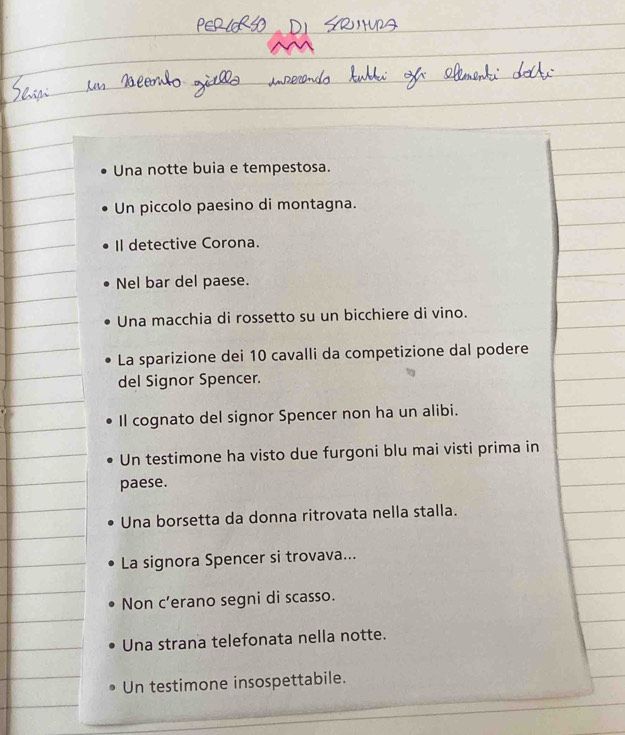 PERCORSO DI SCRITTURA
Scrivi un racconto giallo inserendo tutti gli elementi dati
• Una notte buia e tempestosa.
• Un piccolo paesino di montagna.
• Il detective Corona.
• Nel bar del paese.
• Una macchia di rossetto su un bicchiere di vino.
• La sparizione dei 10 cavalli da competizione dal podere
del Signor Spencer.
• Il cognato del signor Spencer non ha un alibi.
• Un testimone ha visto due furgoni blu mai visti prima in
paese.
• Una borsetta da donna ritrovata nella stalla.
• La signora Spencer si trovava...
• Non c'erano segni di scasso.
• Una strana telefonata nella notte.
• Un testimone insospettabile.